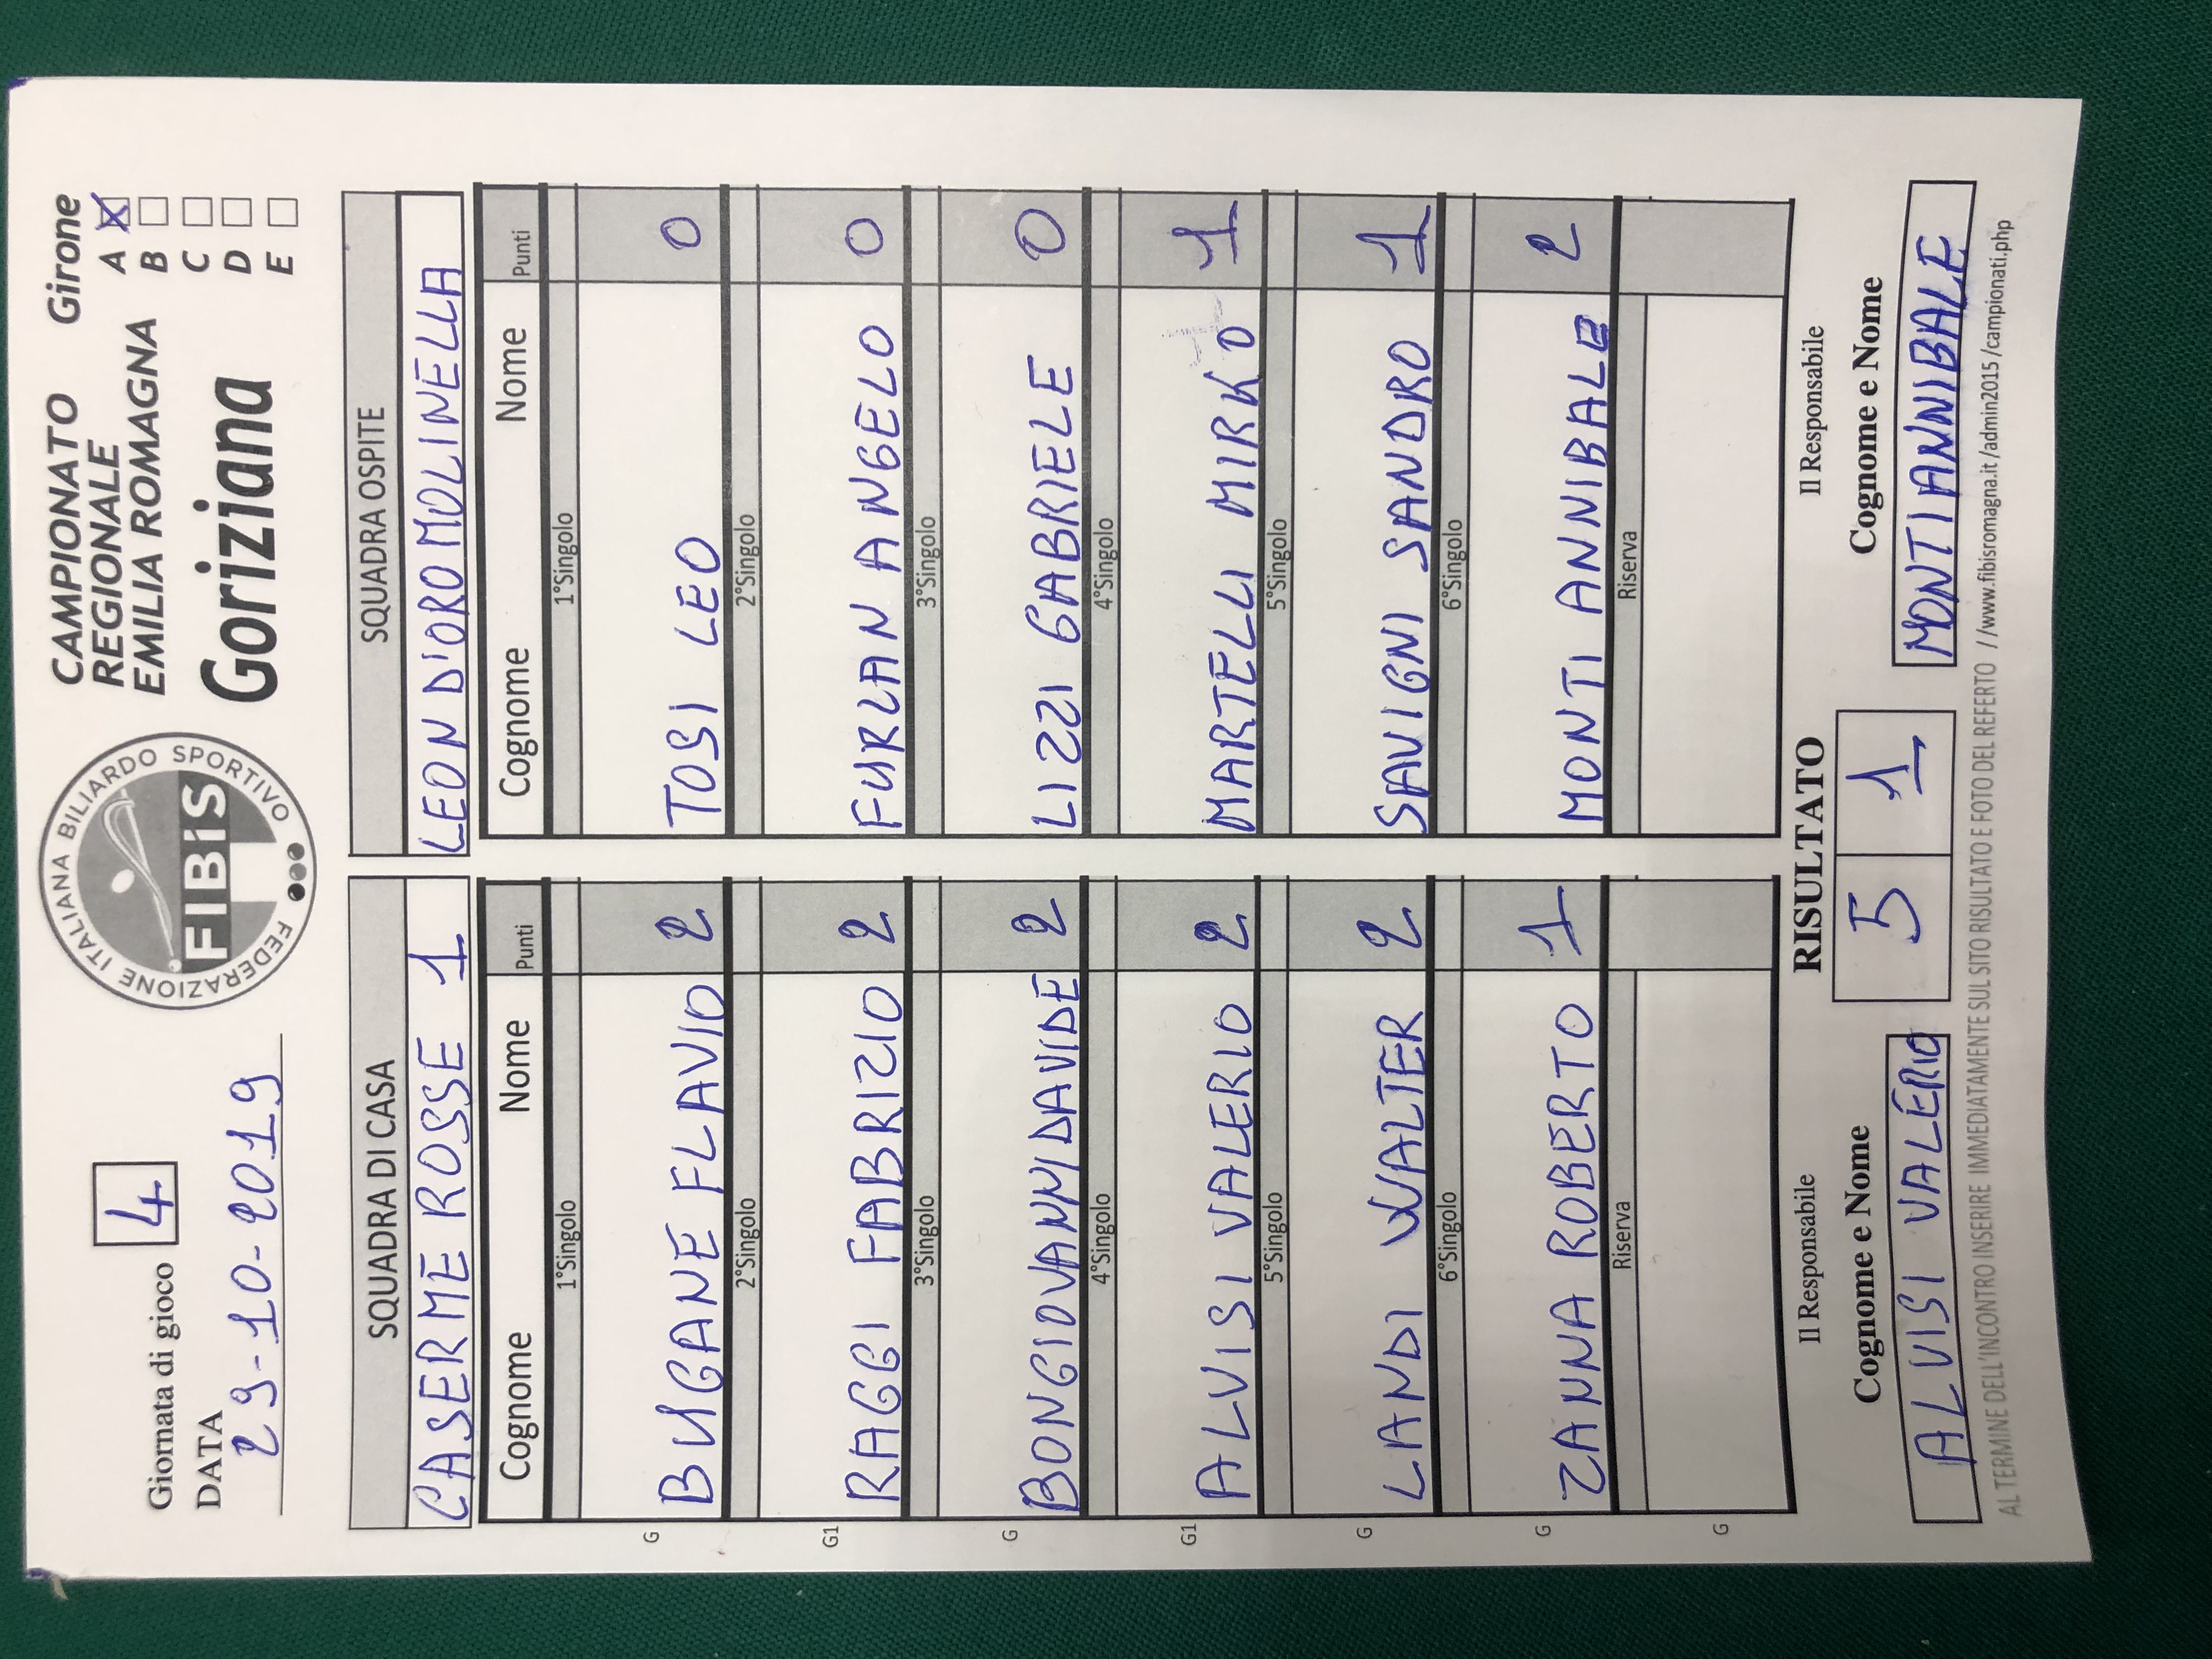 Giornata di gioco 4
DATA
29-10-2019
FEDERAZIONE ITALIANA BILIARDO SPORTIVO
FIBiS
CAMPIONATO
REGIONALE
EMILIA ROMAGNA
Goriziana
Girone
A X
B
C
D
E
SQUADRA DI CASA SQUADRA OSPITE
CASERME ROSSE 1 LEON D'ORO MOLINELLA
Cognome Nome Punti Cognome Nome Punti
1°Singolo 1°Singolo
G BUGANE FLAVIO 2 TOSI LEO 0
2°Singolo 2°Singolo
G1 RAGGI FABRIZIO 2 FURLAN ANGELO 0
3°Singolo 3°Singolo
G BONGIOVANNI DAVIDE 2 LIZZI GABRIELE 0
4°Singolo 4°Singolo
G1 ALVISI VALERIO 2 MARTELLI MIRKO 1
5°Singolo 5°Singolo
G LANDI WALTER 2 SAVIGNI SANDRO 1
6°Singolo 6°Singolo
G ZANNA ROBERTO 1 MONTI ANNIBALE 2
Riserva Riserva
G
Il Responsabile RISULTATO Il Responsabile
Cognome e Nome 5 1 Cognome e Nome
ALVISI VALERIO MONTI ANNIBALE
AL TERMINE DELL'INCONTRO INSERIRE IMMEDIATAMENTE SUL SITO RISULTATO E FOTO DEL REFERTO //www.fibisromagna.it/admin2015/campionati.php